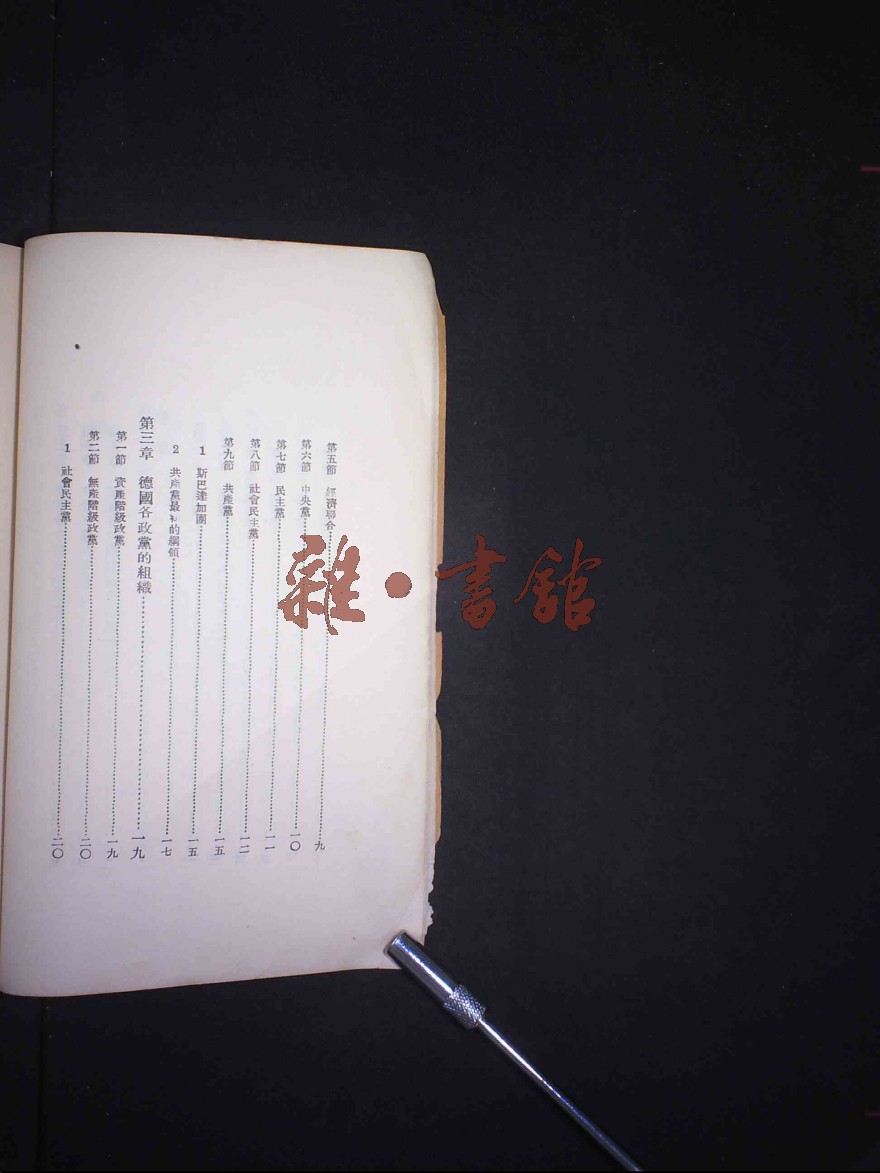 第五節 經濟聯合……九
第六節 中央黨……一〇
第七節 民主黨……一一
第八節 社會民主黨……一二
第九節 共產黨……一五
1 斯巴達加團……一五
2 共產黨最初的綱領……一七
第三章 德國各政黨的組織……一九
第一節 資產階級政黨……一九
第二節 無產階級政黨……二〇
1 社會民主黨……二〇
雜·書館